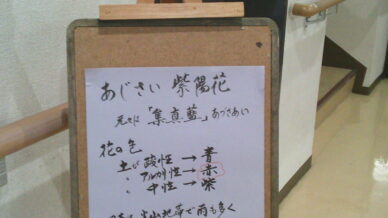 あじさい 紫陽花
元々は「集真藍」あづさあい
花の色
土が 酸性 → 青
〃 アルカリ性 → 赤
〃 中性 → 紫
火山地帯で雨も多く